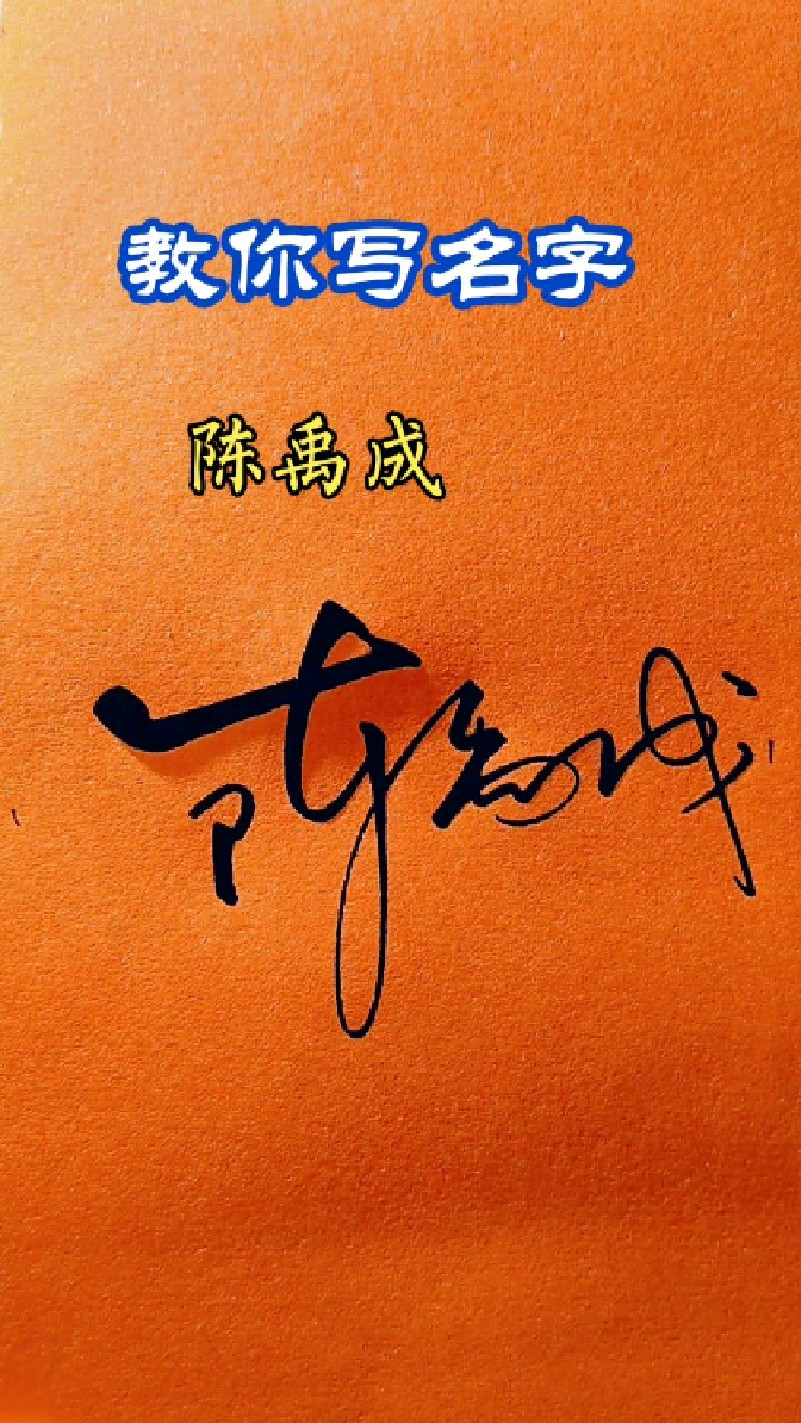 教你写名字
陈禹成
陈禹成